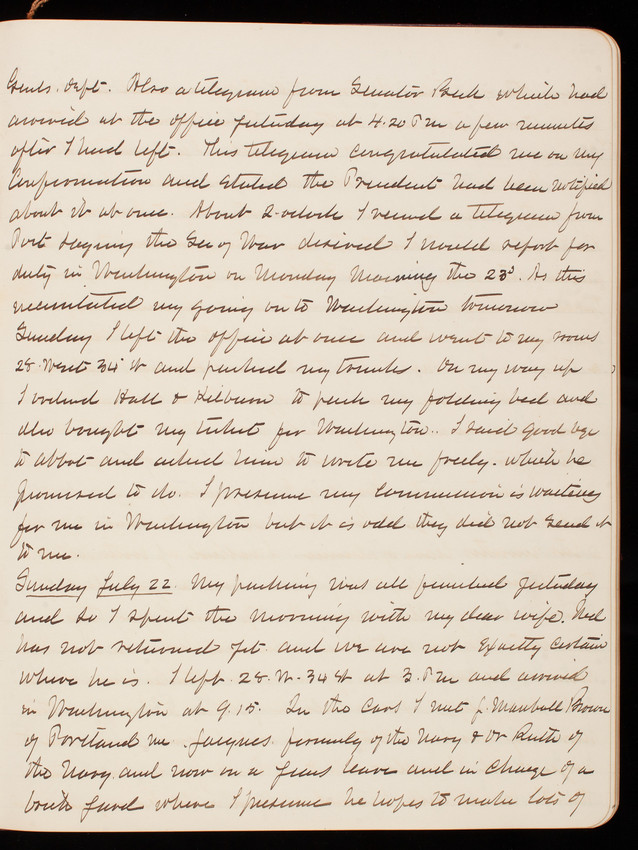 Genls. Dept. Also a telegram from Senator Beck which had
arrived at the office yesterday at 4.20 P m a few minutes
after I had left. This telegram congratulated me on my
Confirmation and stated the President had been notified
about it at once. About 2-oclock I received a telegram from
Port saying the Sec of War desired I would report for
duty in Washington on Monday Morning the 23d. As this
necessitated my going on to Washington tomorrow
Sunday I left the office at once and went to my rooms
28. West 34 st and packed my trunks. On my way up
I ordered Hall & Kilburn to pack my folding bed and
also bought my ticket for Washington. I said good bye
to Abbot and asked him to write me freely. which he
promised to do. I presume my Commission is waiting
for me in Washington but it is odd they did not send it
to me.
Sunday July 22. My packing was all finished yesterday
and so I spent the morning with my dear wife. Ned
has not returned yet and we are not exactly certain
where he is. I left 28. W. 34 st at 3. P m and arrived
in Washington at 9.15. In the Cars I met J. Marshall Brown
of Portland Me. Jaques. formerly of the Navy & Dr Ruth of
the Navy. and now on a years leave and in charge of a
brick yard where I presume he hopes to make lots of